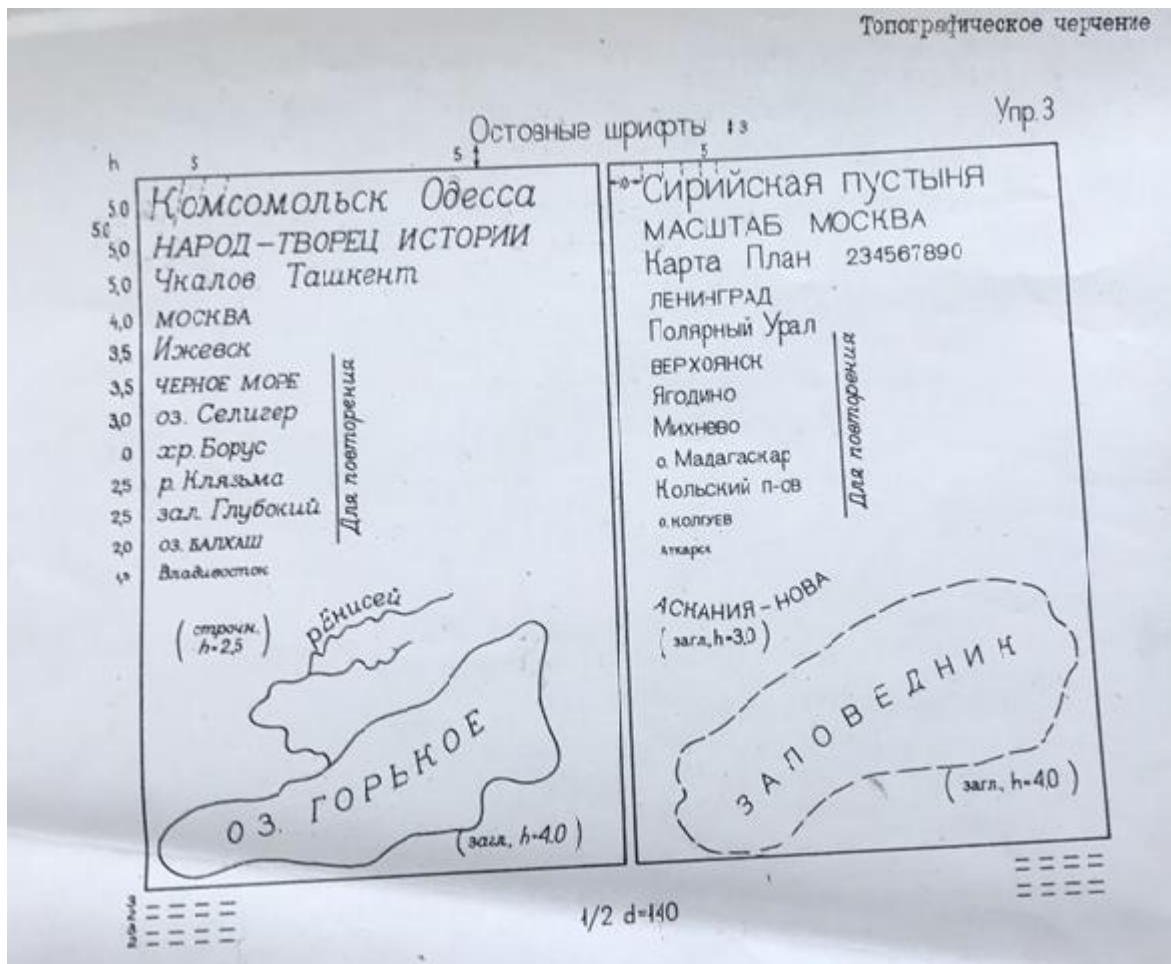 Топографическое черчение
Упр. 3
Остовные шрифты 3
h 5 5
5,0 Комсомольск Одесса
5,0
5,0 НАРОД-ТВОРЕЦ ИСТОРИИ
5,0 Чкалов Ташкент
4,0 МОСКВА
3,5 Ижевск
3,5 ЧЕРНОЕ МОРЕ
3,0 оз. Селигер
0 хр. Борус
2,5 р. Клязьма
2,5 зал. Глубокий
2,0 оз. БАЛХАШ
Владивосток
Для повторения
(строчн. h=2,5)
р. Енисей
ОЗ. ГОРЬКОЕ
(загл., h=4.0)
5
10 Сирийская пустыня
МАСШТАБ МОСКВА
Карта План 234567890
ЛЕНИНГРАД
Полярный Урал
ВЕРХОЯНСК
Ягодино
Михнево
о. Мадагаскар
Кольский п-ов
о. КОЛГУЕВ
Аткарск
Для повторения
АСКАНИЯ-НОВА
(загл., h=3,0)
ЗАПОВЕДНИК
(загл., h=4,0)
1/2 d=140